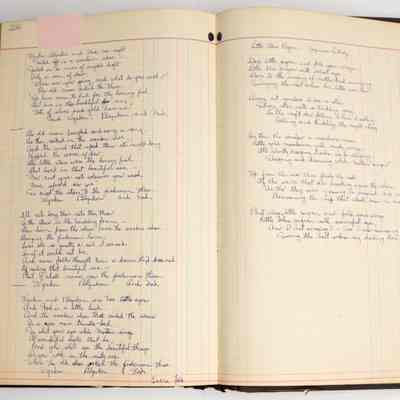 Wynken, Blynken and Nod one night
Sailed off in a wooden shoe
Sailed on a river of crystal light
Into a sea of dew
Where are you going and what do you wish?
The old moon asked the three
We have come to fish for the herring fish
That live in this beautiful sea
Nets of silver and gold have we
Said Wynken Blynken and Nod.
The old moon laughed and sang a song
As they rocked in the wooden shoe
And the wind that sped them all night long
Ruffled the waves of dew
The little stars were the herring fish
That lived in that beautiful sea
Now cast your nets wherever you wish
Never afeard are we
So cried the stars to the fishermen three
Wynken Blynken and Nod.
All night long their nets they threw
To the stars in the twinkling foam
Then down from the skies came the wooden shoe
Bringing the fishermen home
'Twas all so pretty a sail it seemed
As if it could not be
And some folks thought 'twas a dream they'd dreamed
Of sailing that beautiful sea
But I shall name you the fishermen three
Wynken Blynken and Nod.
Wynken and Blynken are two little eyes
And Nod is a little head
And the wooden shoe that sailed the skies
Is a wee one's trundle-bed
So shut your eyes while Mother sings
Of wonderful sights that be
And you shall see the beautiful things
As you rock in the misty sea
Where the old shoe rocked the fishermen three
Wynken Blynken Nod.
Little Blue Pigeon Japanese Lullaby
Sleep little pigeon and fold your wings
Little blue pigeon with velvet eyes
Sleep to the singing of mother-bird swinging
Swinging the nest where her little one lies.
Away out yonder I see a star
Silvery star with a tinkling song
To the soft dew falling I hear it calling
Calling and tinkling the night along
In thru the window a moonbeam comes
Little gold moonbeam with misty wings
All silently creeping, it asks, is he sleeping
Sleeping and dreaming while mother sings
Up from the sea there floats the sob
Of the waves that are breaking upon the shore
As tho' they were groaning in anguish and moaning
Bemoaning the ship that shall come no more
But sleep, little pigeon and fold your wings
Little blue pigeon with mournful eyes
Am I not singing? - See I am swinging
Swinging the nest where my darling lies